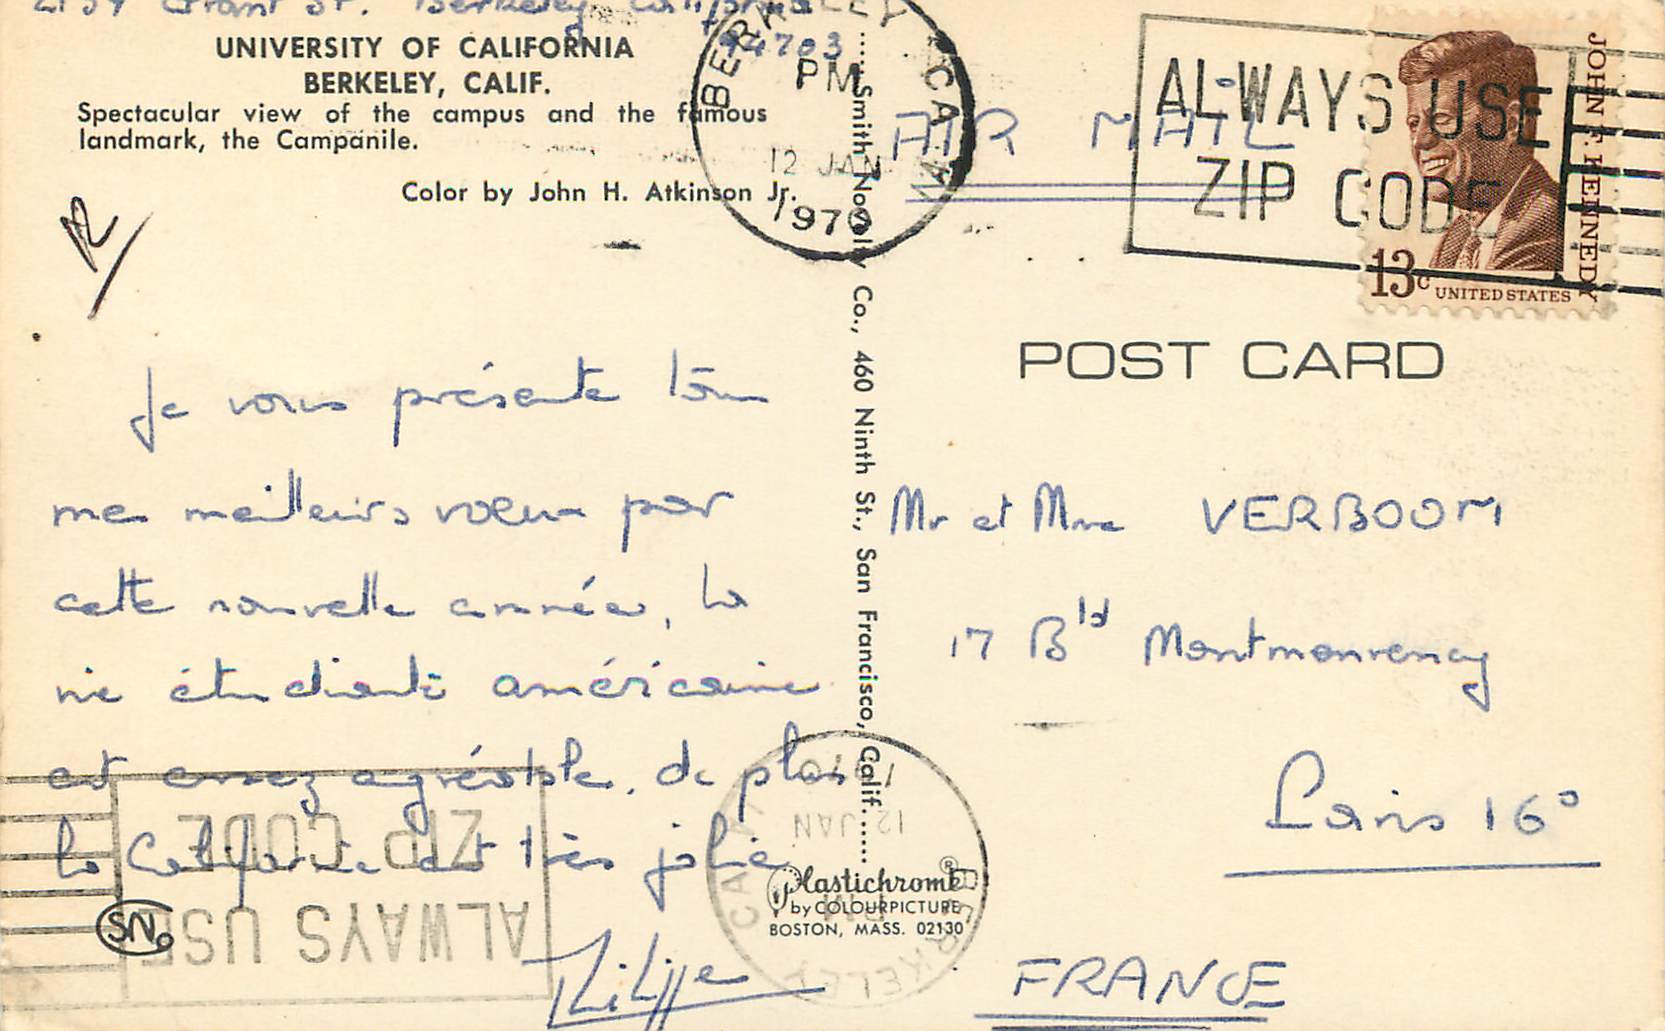 Grant St. Berkeley California
94703
UNIVERSITY OF CALIFORNIA
BERKELEY, CALIF.
Spectacular view of the campus and the famous
landmark, the Campanile.
Color by John H. Atkinson Jr.
BERKELEY CA
PM
12 JAN
1970
AIR MAIL
ALWAYS USE
ZIP CODE
JOHN F. KENNEDY
13c UNITED STATES
POST CARD
Je vous présente tous
mes meilleurs voeux par
cette nouvelle année, la
vie étudiante américaine
est assez agréable, de plus
la Californie est très jolie
Philippe
SN
Smith Novelty Co., 460 Ninth St., San Francisco, Calif.
Mr et Mme VERBOOM
17 Bld Montmorency
Paris 16°
FRANCE
Plastichrome®
by COLOURPICTURE
BOSTON, MASS. 02130
BERKELEY CA
PM
12 JAN
1970
ALWAYS USE
ZIP CODE